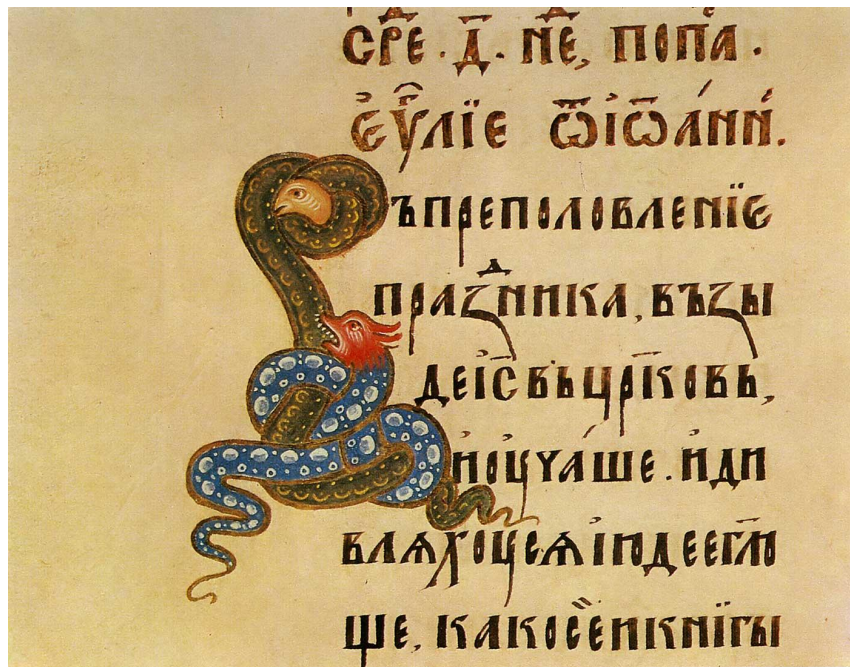 срⷷе · д҃ · нⷷе, попⷶа ·
єѵ҃лїе ѿіѡа́нн.
Въпреполовленїе
праꙁⷣника, въꙁы
деі҃с въцр҃ковь,
иоуча́ше. иди
влѧхоусѧ іюдеегл҃ю
ще, како сеикнїгы